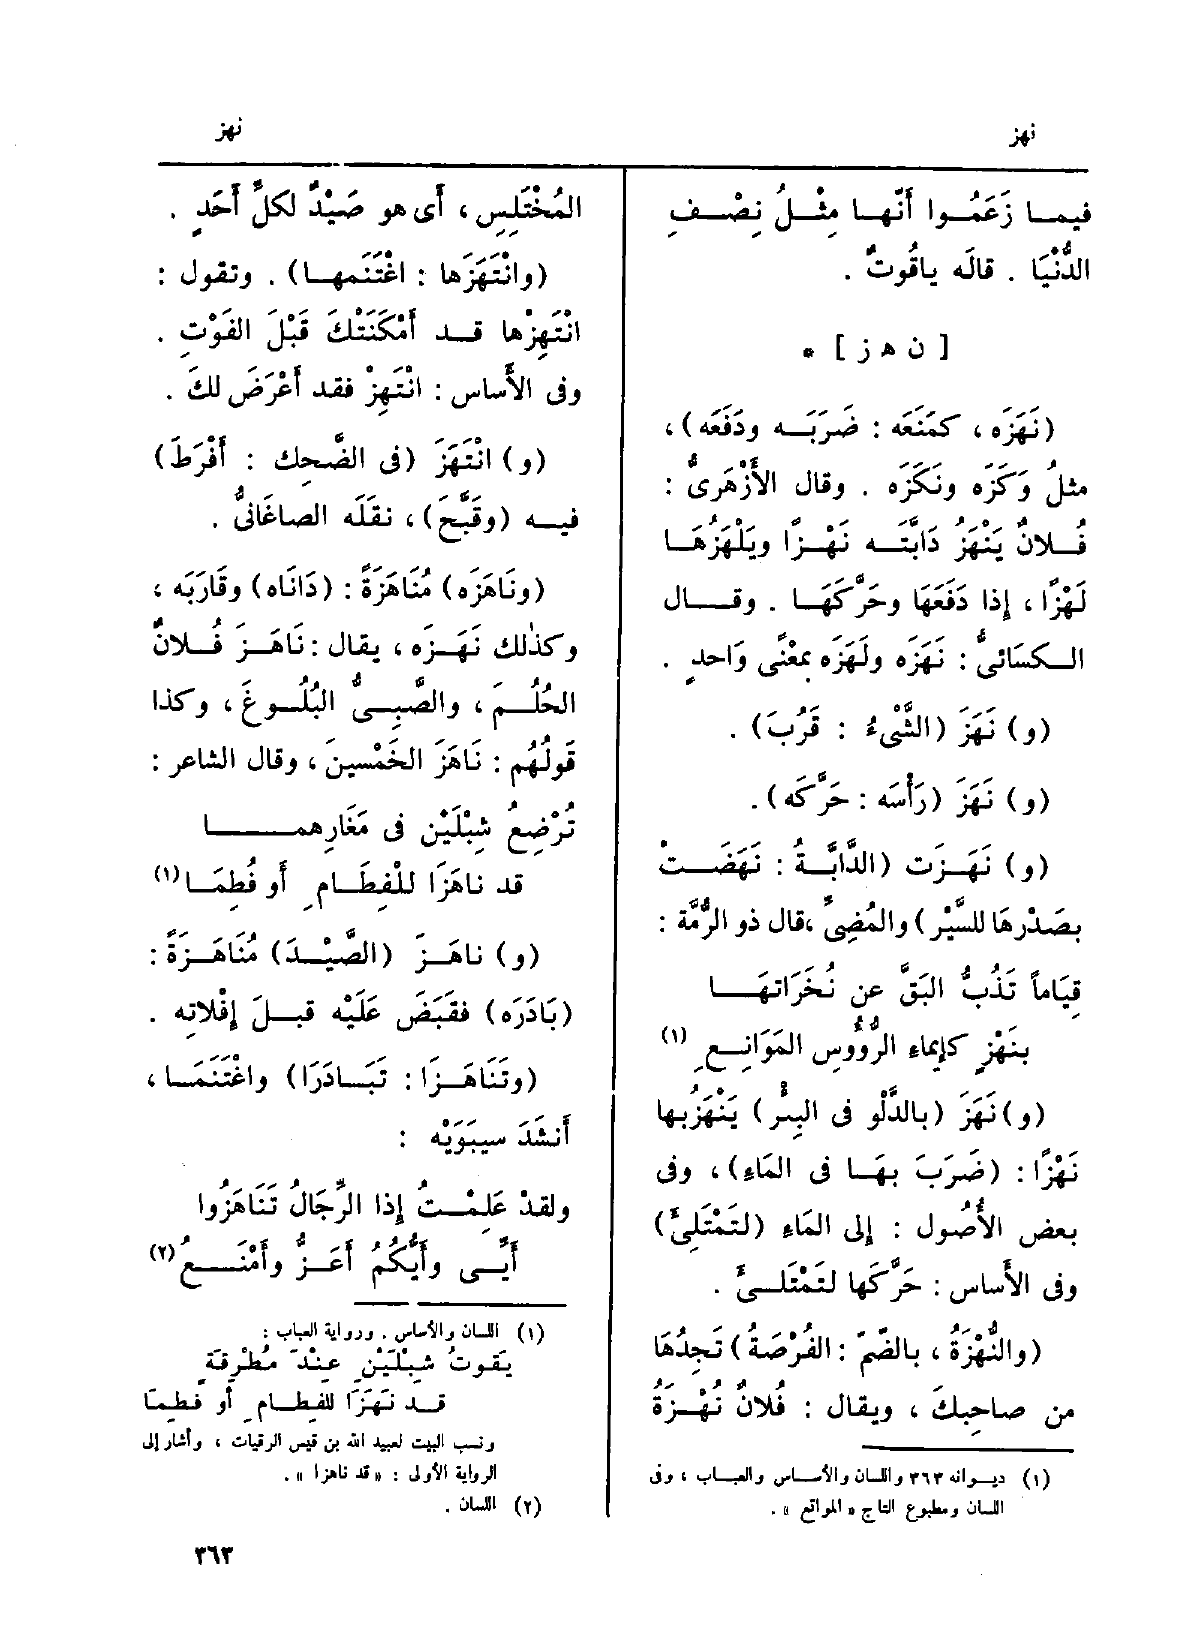 نهز
نهز
فيمـا زَعَمُـوا أَنَّهـا مِثْـلُ نِصْـفِ
الدُّنْيَا . قاله ياقوتٌ .
[ ن هـ ز ] *
(نَهَزَه ، كمَنَعَه : ضَرَبَـه ودَفَعَه) ،
مثلُ وَكَزَه ونَكَزَه . وقال الأَزْهَرىُّ :
فُـلانٌ يَنْهَزُ دَابَّتَـه نَهْـزًا ويَلْهَزُهَـا
لَهْزًا ، إِذا دَفَعَهَا وحَرَّكَهَـا . وقـال
الـكسَائىُّ : نَهَزَه ولَهَزَه بمَعْنًى وَاحدٍ .
(و) نَهَزَ (الشَّىْءُ : قَرُبَ) .
(و) نَهَزَ (رَأْسَه : حَرَّكَه) .
(و) نَهَـزَت (الدَّابَّـةُ : نَهَضَـتْ
بصَدْرهَا للسَّيْر) والمُضِىِّ ،قال ذو الرُّمَّة :
قِيَاماً تَذُبُّ البَقَّ عن نُخَرَاتهَـا
بنَهْزٍ كإِيماء الرُّؤُوسِ المَوَانِـعِ (١)
(و) نَهَزَ (بالدَّلْو فى البِئْر) يَنْهَزُبها
نَهْزًا : (ضَرَبَ بهَـا فى المَاءِ) ، وفى
بعض الأُصُول : إِلى المَاءِ (لتَمْتَلِئَ)
وفى الأَساس : حَرَّكَها لتَمْتَلـىَٔ .
(والنُّهْزَةُ ، بالضّمّ : الفُرْصَةُ) تَجدُهَا
من صاحبكَ ، ويقال : فُلانٌ نُهْـزَةُ
(١) ديـوانه ٣٦٣ واللسان والأسـاس والعبـاب ، وفى
اللسان ومطبوع التاج « المواقع » .
المُخْتَلِسِ ، أَى هو صَيْدٌ لكلِّ أَحَدٍ .
(وانْتَهَزَها : اغْتَنَمهـا) . وتقول :
انْتَهِزْها قـد أَمْكَنَتْكَ قَبْلَ الفَوْتِ .
وفى الأَساس : انْتَهِزْ فقد أَعْرَضَ لكَ .
(و) انْتَهَزَ (فى الضَّحِك : أَفْرَطَ)
فيـه (وقَبَّحَ) ، نقلَه الصاغانىُّ .
(ونَاهَزَه) مُنَاهَزَةً : (دَانَاه) وقَارَبَه ،
وكذٰلك نَهَـزَه ، يقال : نَاهَـزَ فُـلانٌ
الحُلُـمَ ، والصَّبِـىُّ البُلُـوغَ ، وكذا
قَولُهُم : نَاهَزَ الخَمْسينَ ، وقال الشاعر :
تُرْضِعُ شِبْلَيْن فى مَغَارِهمـــا
قد ناهَزَا للْفِطَـامِ أَو فُطِمَـا (١)
(و) ناهَـزَ (الصَّيْـدَ) مُنَاهَـزَةً :
(بَادَرَه) فقَبَضَ عَلَيْه قبـلَ إِفْلاته .
(وتَنَاهَـزَا : تَبَـادَرَا) واغْتَنَمَـا ،
أَنشَدَ سيبَوَيْه :
ولقدْ عَلِمْـتُ إِذا الرِّجَالُ تَنَاهَزُوا
أَيِّـى وأَيُّكُمْ أَعَـزُّ وأَمْنَـعُ (٢)
(١) اللسان والأساس . ورواية العباب :
يَقـوتُ شِبْلَيْنِ عِنْـدَ مُطْرِقَةٍ
قـد نَهَزَا للفِطَـامِ أَو فُطِمَـا
ونسب البيت لعبيد الله بن قيس الرقيات ، وأشار إلى
الرواية الأولى : « قد ناهزا » .
(٢) اللسان .
٣٦٣